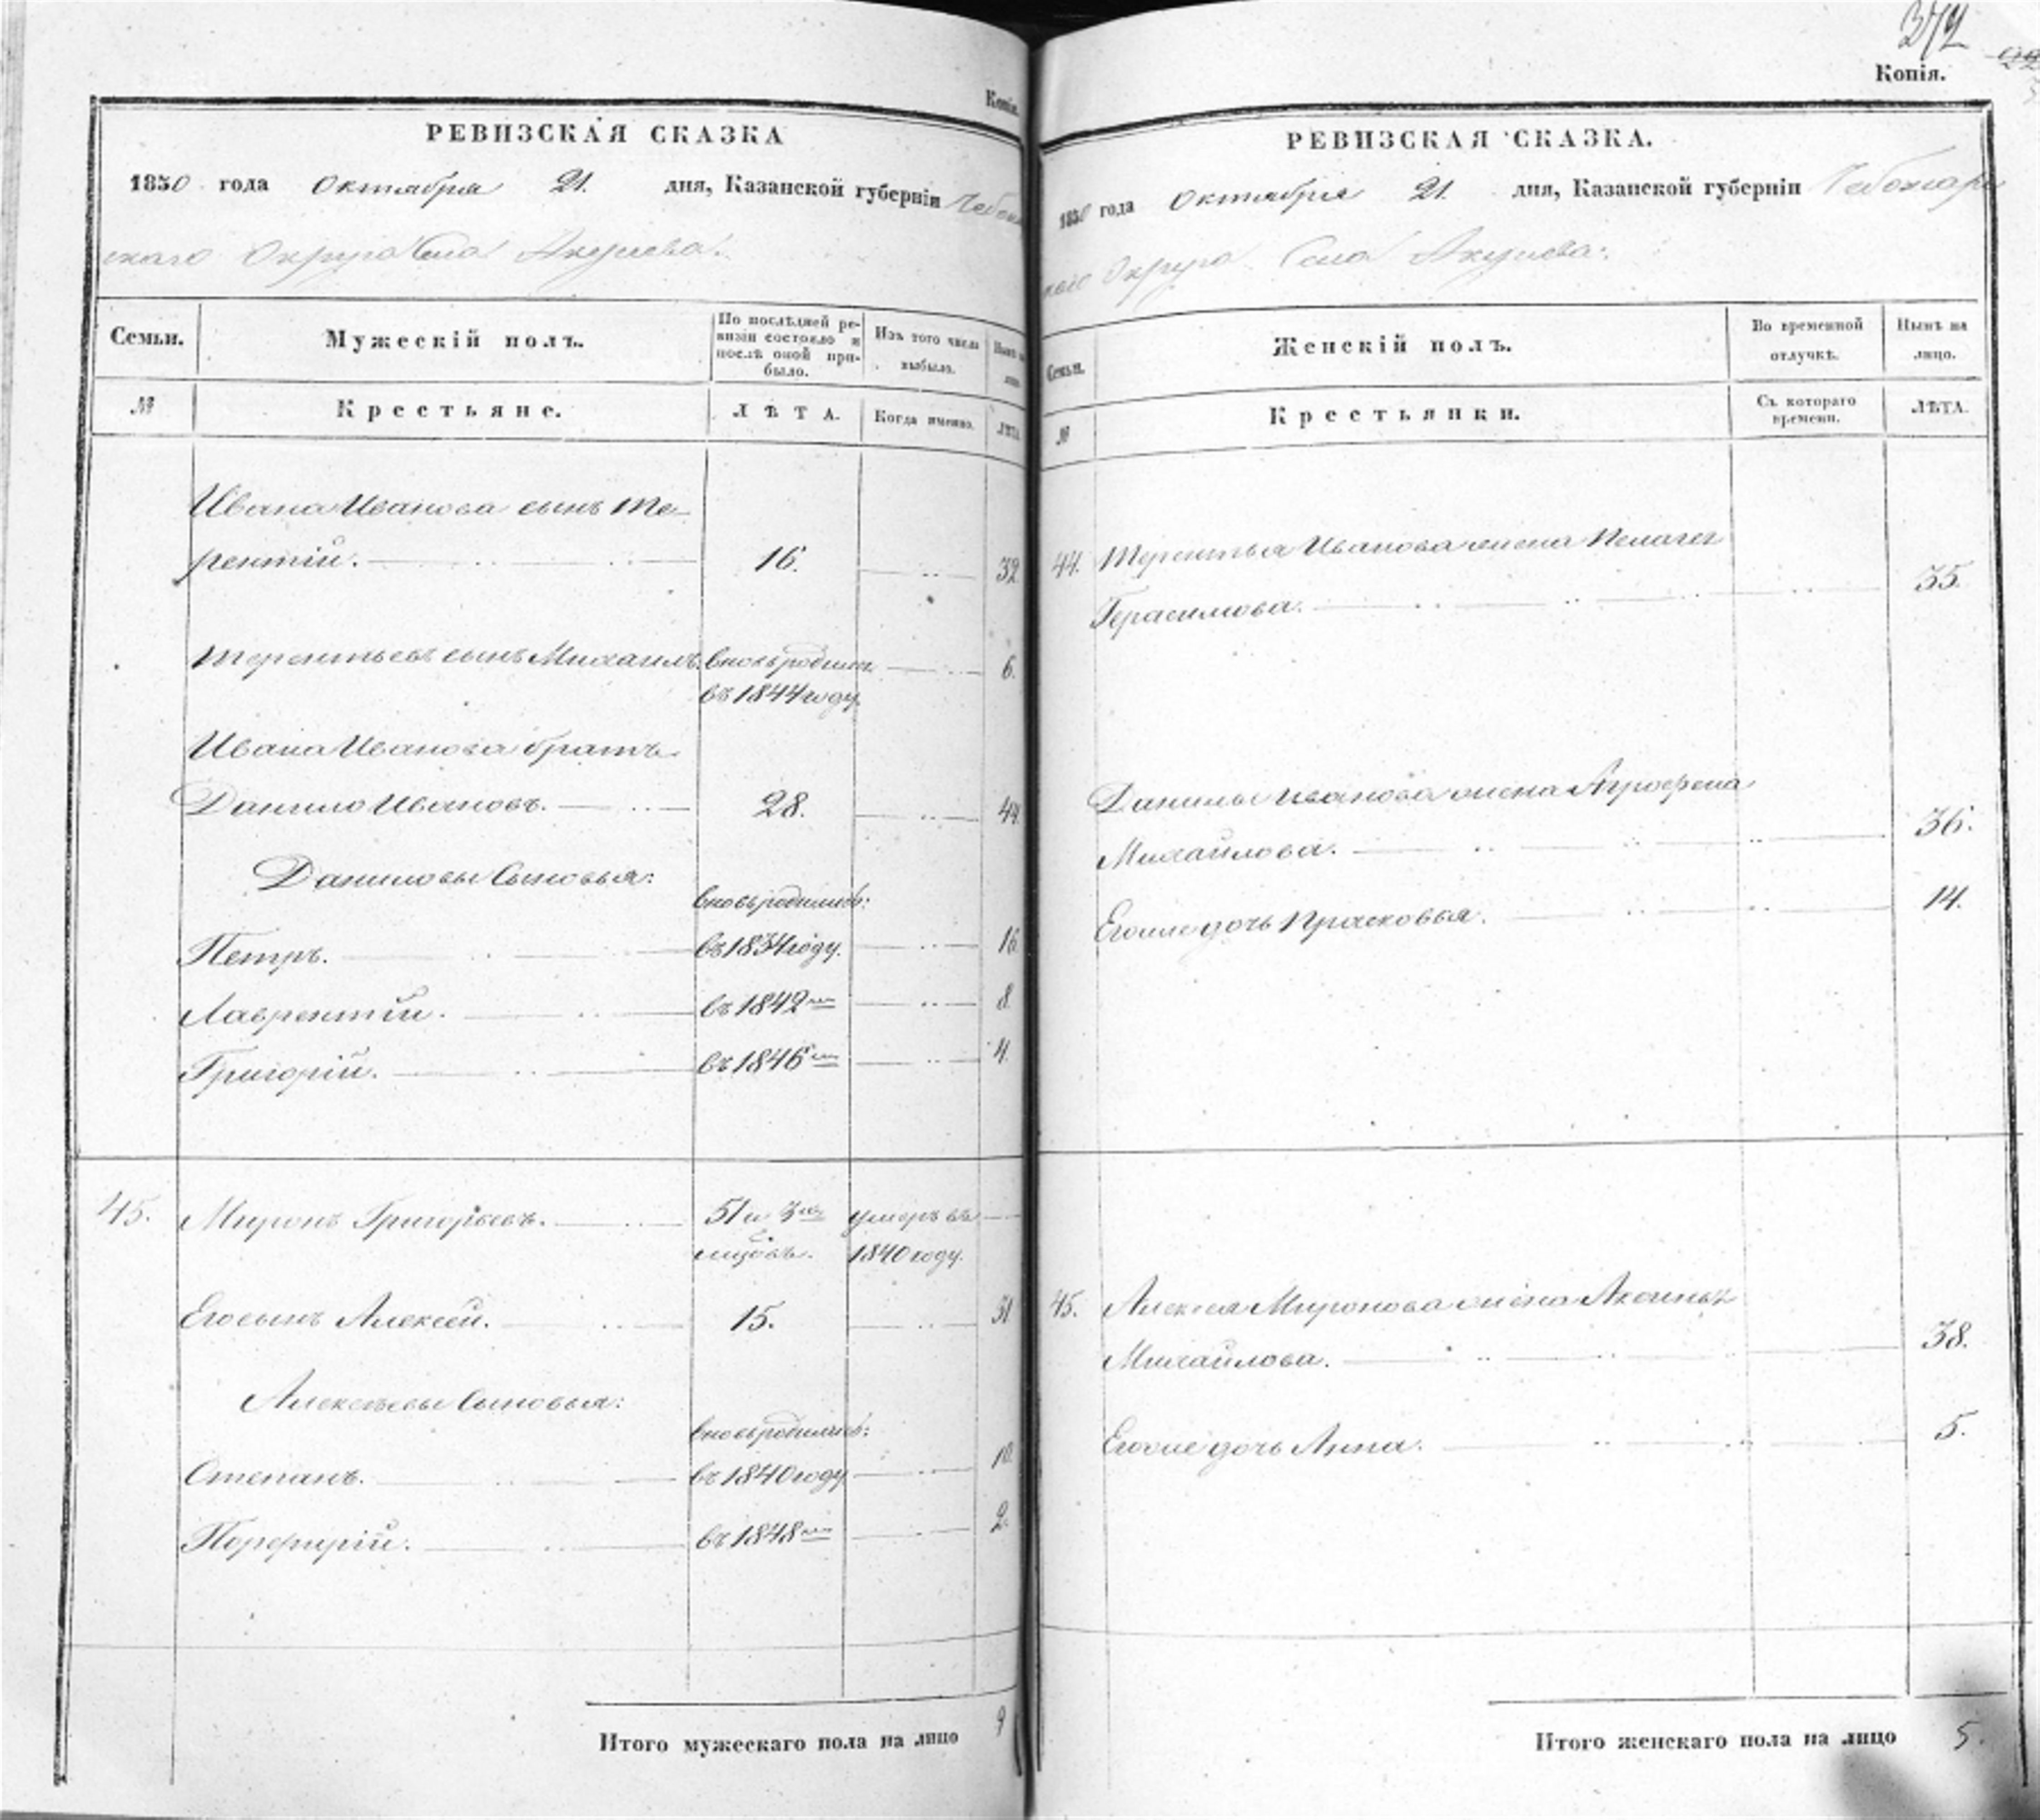 Копія.
РЕВИЗСКАЯ СКАЗКА
1850 года Октября 21. дня, Казанской губерніи Чебок
скаго Округа Села Акулева.
Семьи. Мужескій полъ. По послѣдней ревизіи состояло и послѣ оной прибыло. Изъ того числа выбыло. Нынѣ на лицо.
№ Крестьяне. ЛѢТА. Когда именно. ЛѢТА.
Ивана Иванова сынъ Те-
рентій. 16. 32.
Терентьевъ сынъ Михаилъ. вновь родился 6.
въ 1844 году.
Ивана Иванова братъ
Данило Ивановъ. 28. 44.
Даниловы Сыновья:
вновь родились:
Петръ. въ 1834 году. 16.
Лаврентій. въ 1842мъ 8.
Григорій. въ 1846мъ 4.
45. Миронъ Григорьевъ. 51 и 3 мѣ- умеръ въ
сяцовъ. 1840 году.
Его сынъ Алексей. 15. 31
Алексѣевы Сыновья:
вновь родились:
Степанъ. въ 1840 году 10.
Порфирій. въ 1848мъ 2.
Итого мужескаго пола на лицо 9
372
Копія.
РЕВИЗСКАЯ СКАЗКА.
1850 года Октября 21. дня, Казанской губерніи Чебоксар
скаго Округа Села Акулева:
Семьи. Женскій полъ. Во временной отлучкѣ. Нынѣ на лицо.
№ Крестьянки. Съ котораго времени. ЛѢТА.
44. Терентья Иванова жена Пелагея
Герасимова. 35.
Данилы Иванова жена Агрофена
Михайлова. 36.
Его же дочь Прасковья. 14.
45. Алексея Миронова жена Аксинья
Михайлова. 38.
Его же дочь Анна. 5.
Итого женскаго пола на лицо 5.